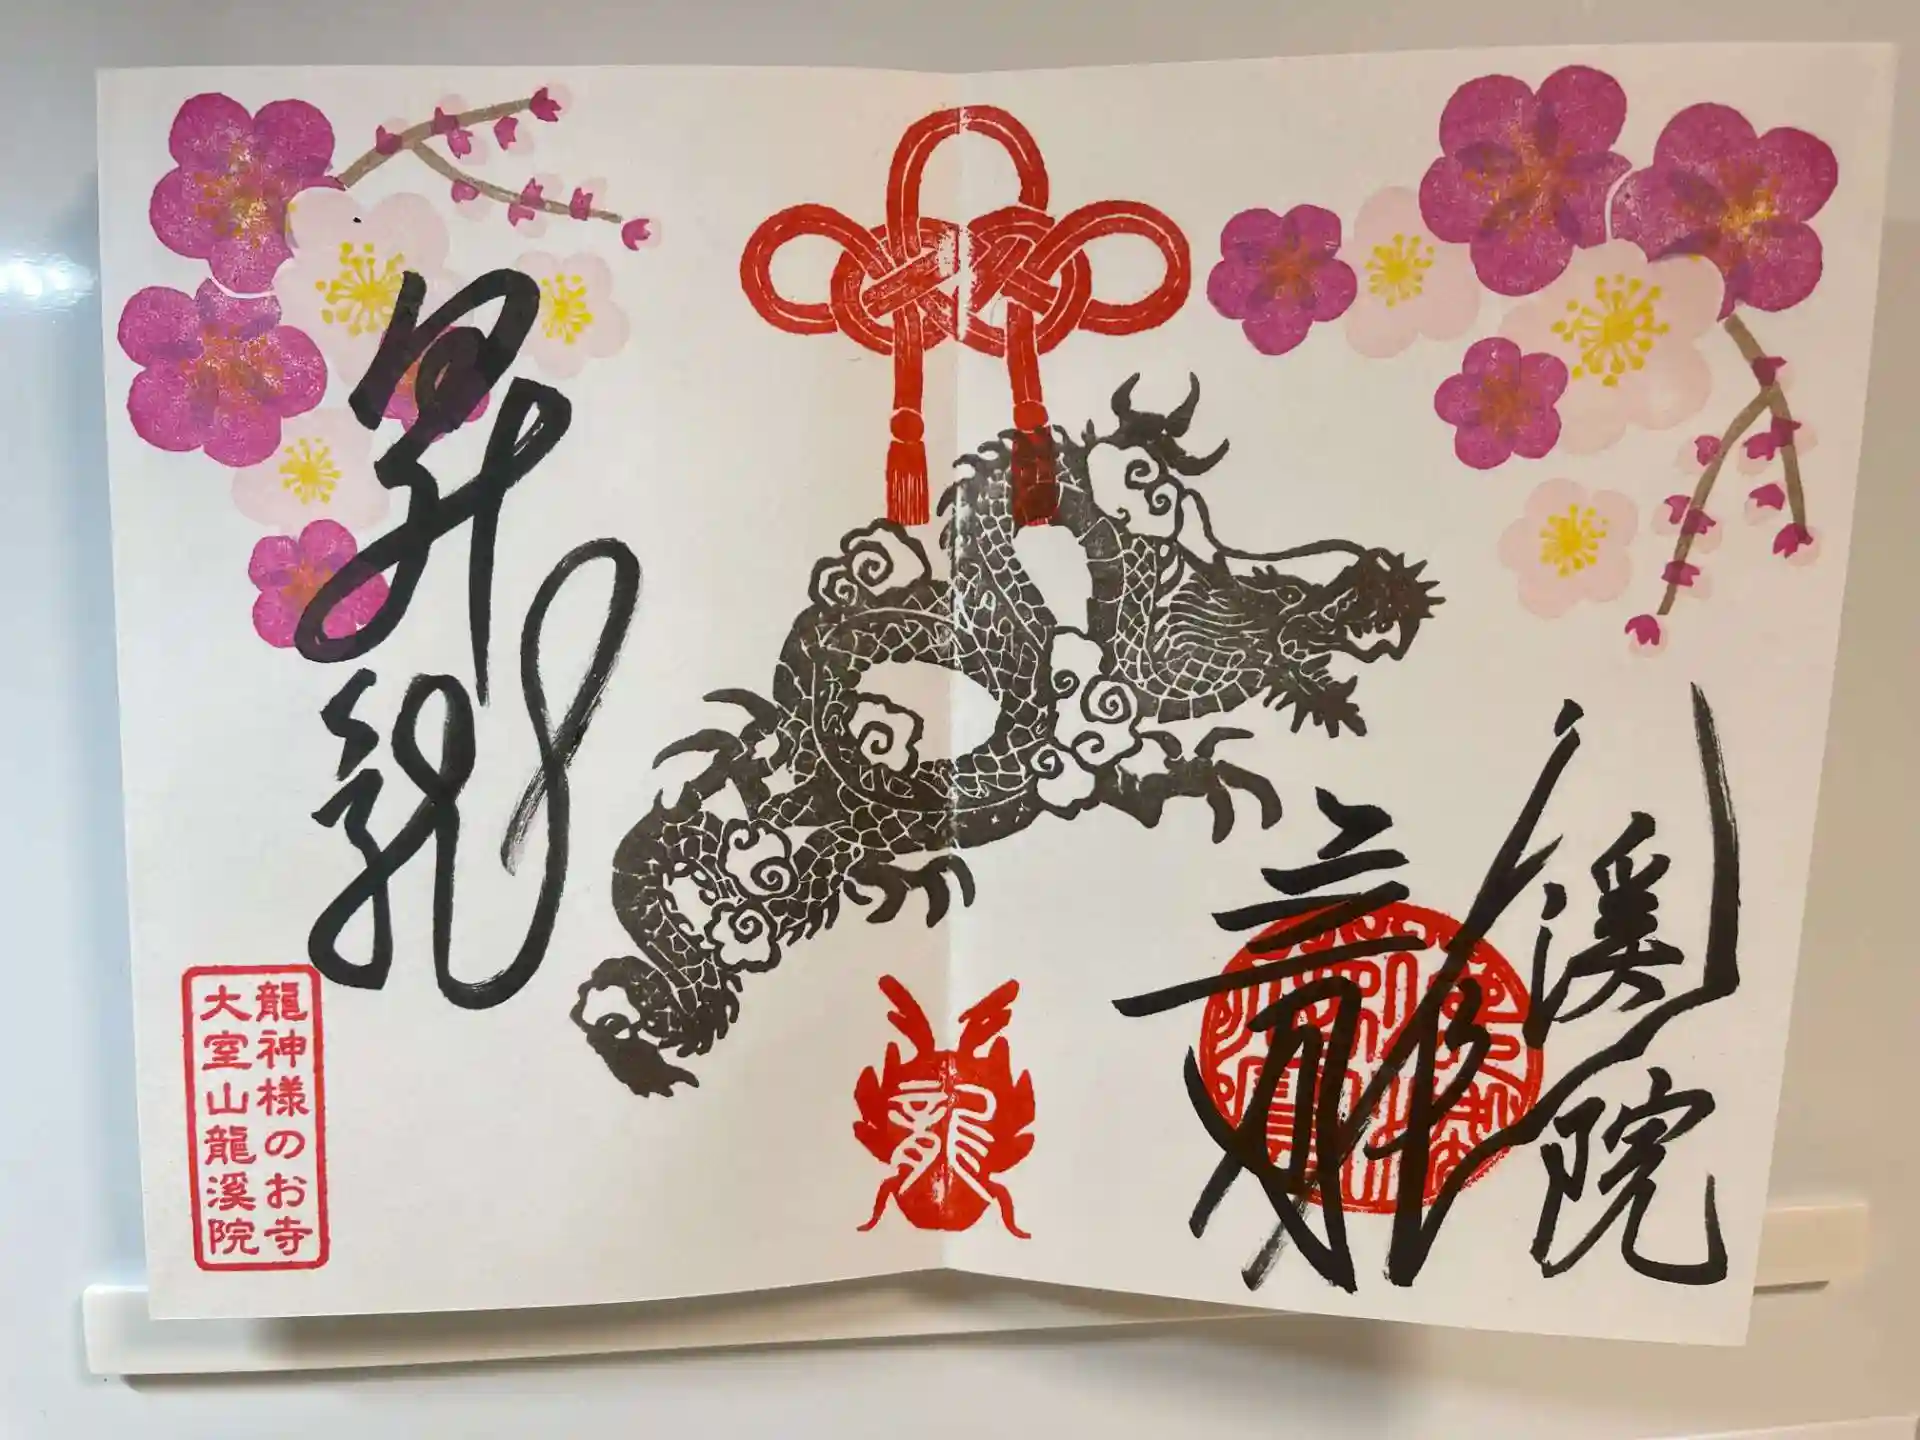 龍溪院
龍
昇龍
龍神様のお寺
大室山龍溪院